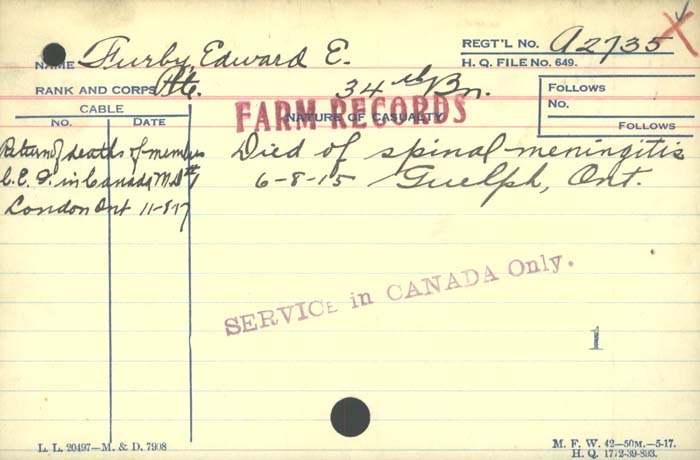 NAME Furby, Edward E. REGT'L No. A2735
H. Q. FILE No. 649.
RANK AND CORPS Pte. 34th Bn.
FOLLOWS
No.
FOLLOWS
CABLE
No. DATE
FARM RECORDS
NATURE OF CASUALTY
Return of deaths of members Died of spinal meningitis
C.E.F. in Canada M.D. 6-8-15 Guelph, Ont.
London Ont 11-8-17
SERVICE in CANADA Only.
1
L. L. 20497—M. & D. 7908
M. F. W. 42—50M.—5-17.
H. Q. 1772-39-893.